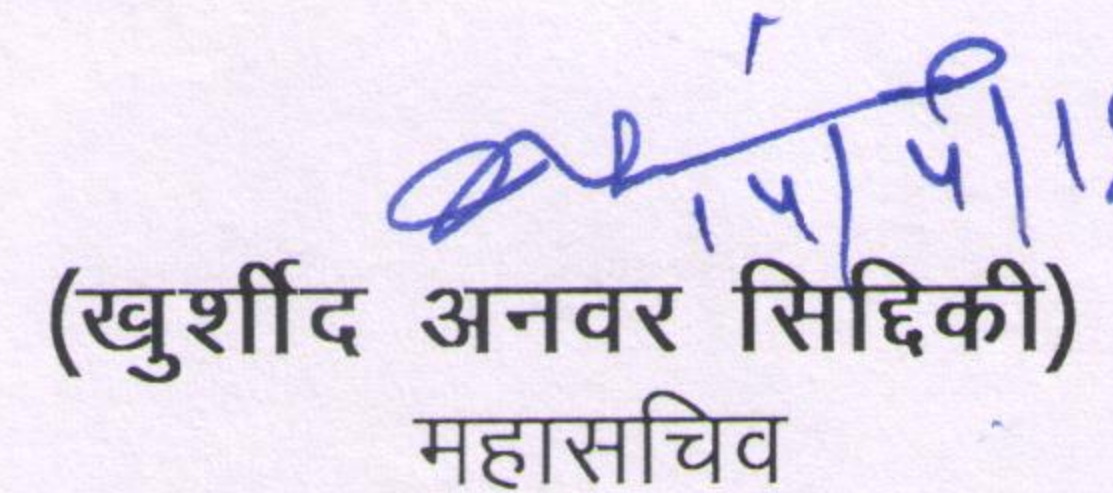 (खुर्शीद अनवर सिद्दिकी)
महासचिव